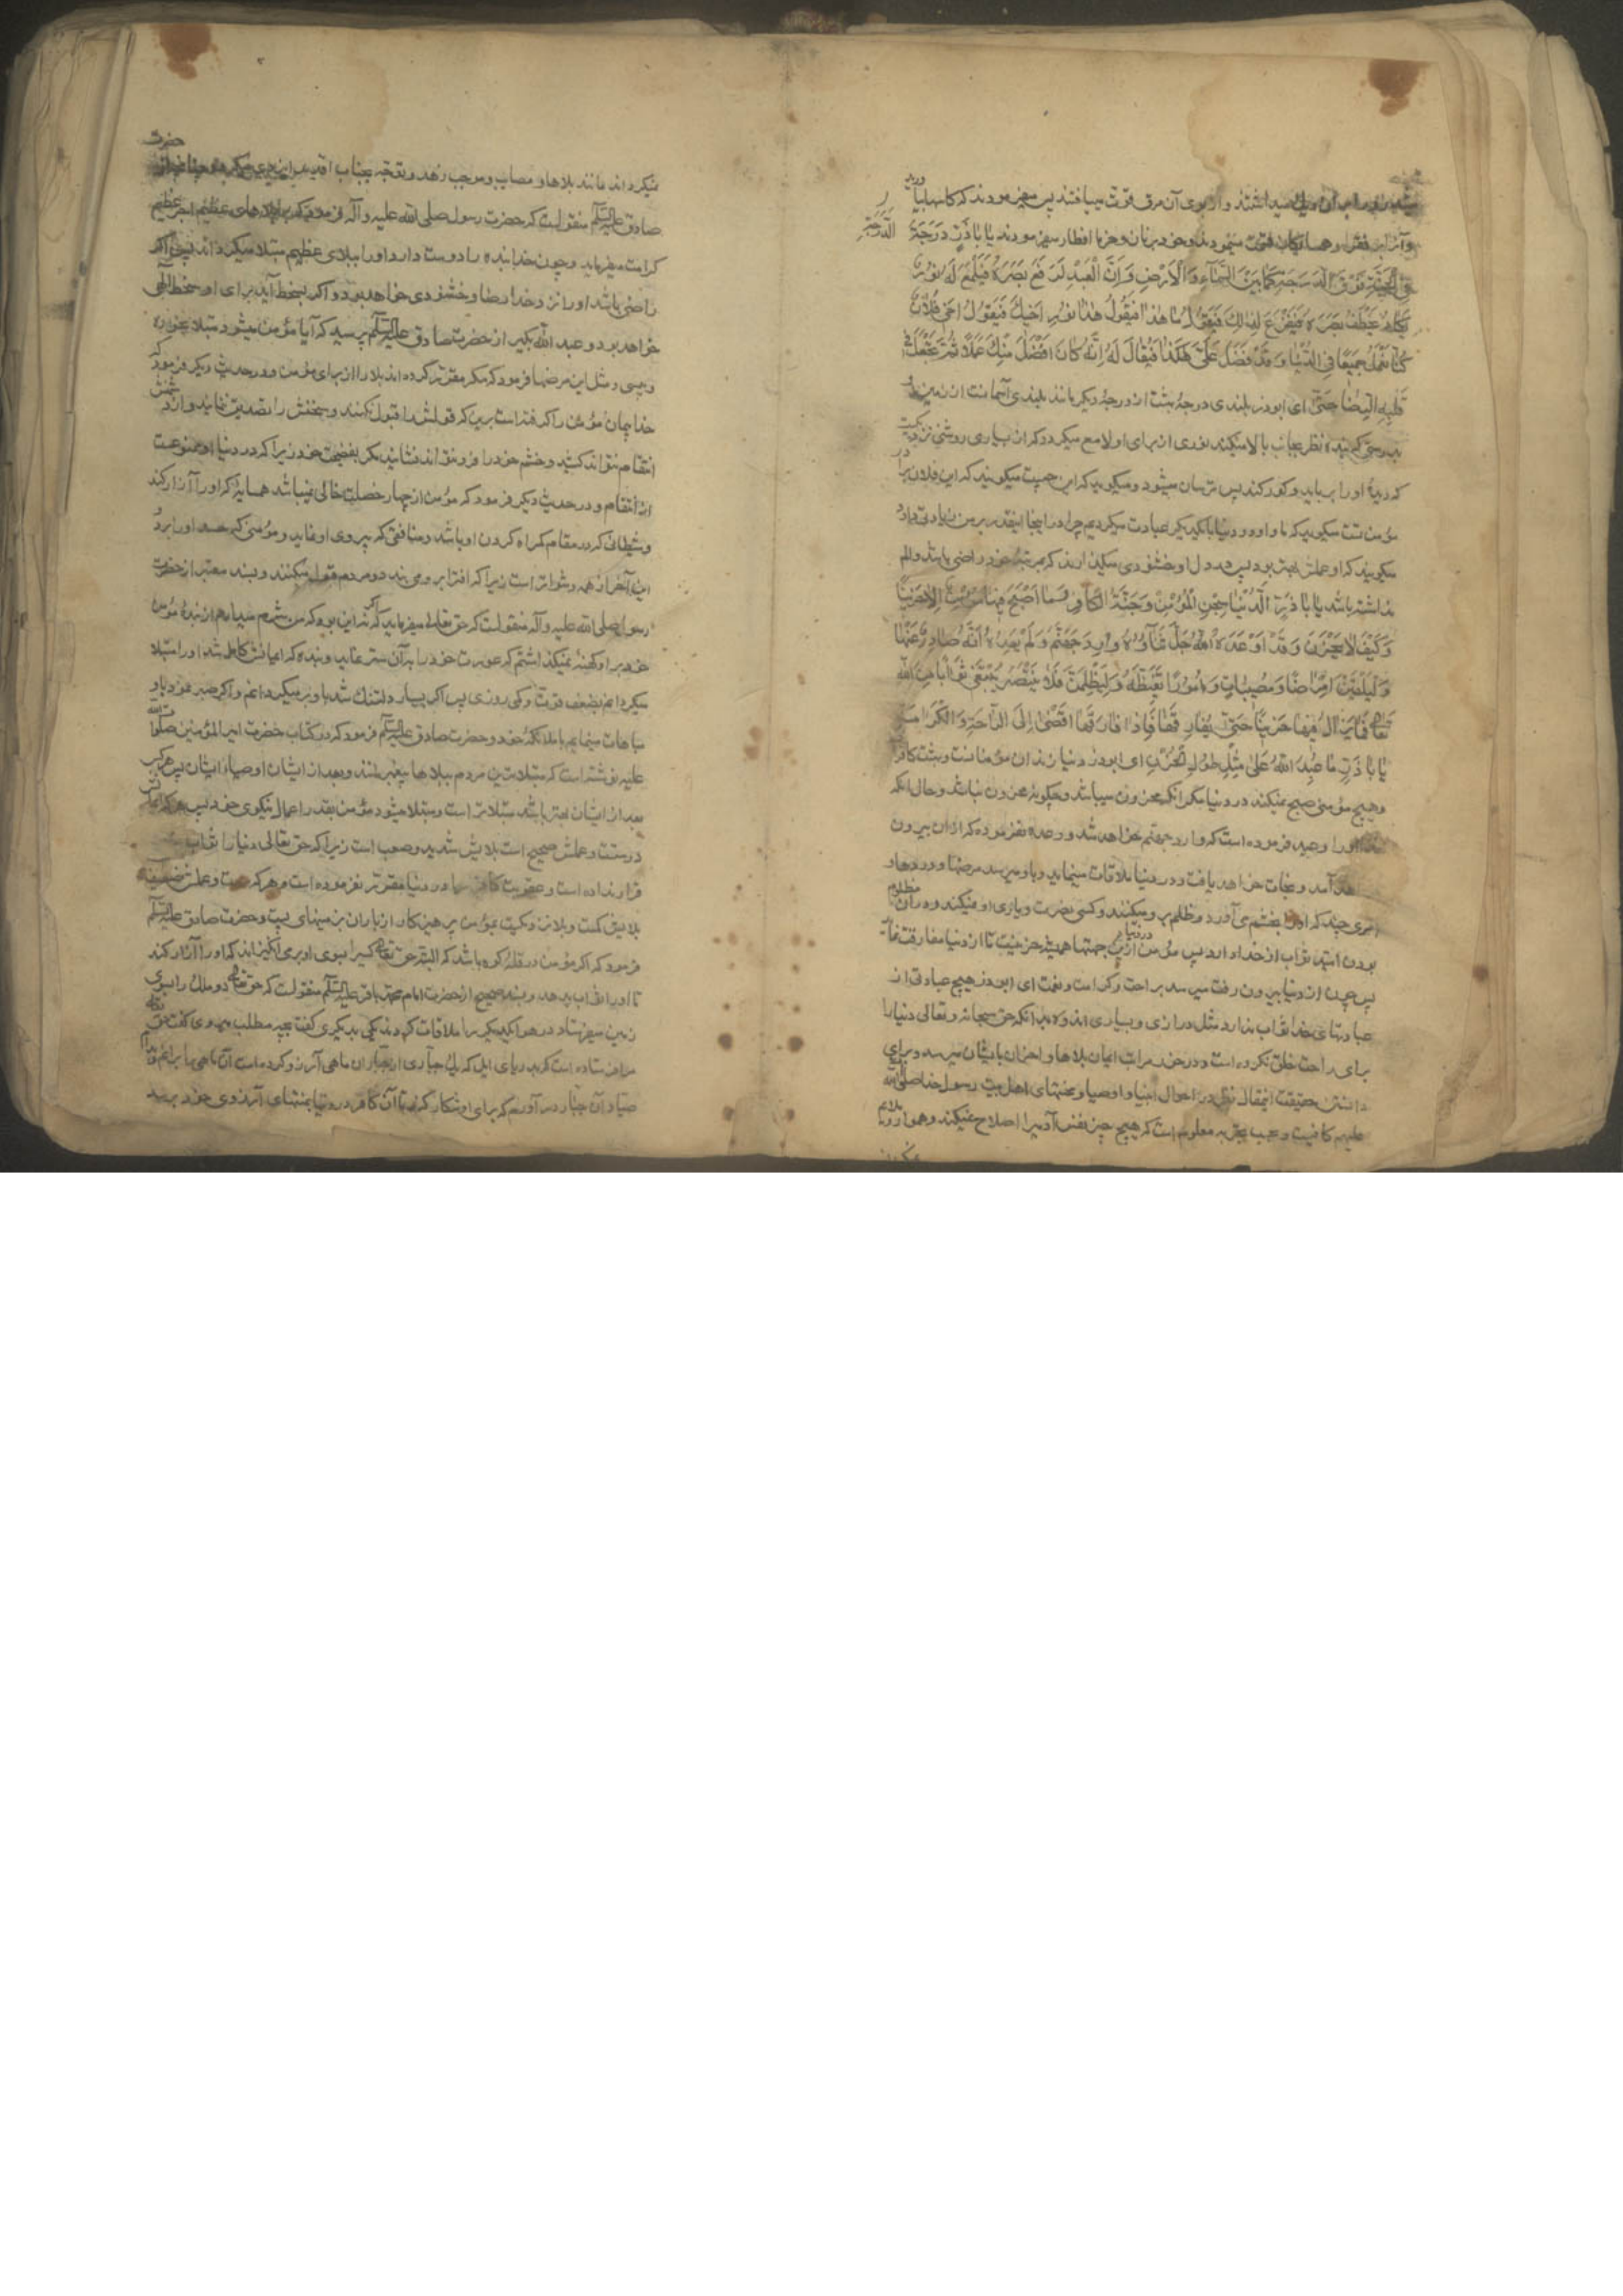 میداشتند و از بوی آن مرق قوت مییافتند پس میفرمودند که کاسها بیاورید
و از برای فقرا و همسایگان قسمت مینمودند و خود بنان و خرما افطار میفرمودند یا با ذر الدرجة
فی الجنة فوق الدرجة کما بین السماء و الارض و ان العبد لیرفع بصره فیلمع له نور
یکاد یخطف بصره فیفزع لذلک فیقول ما هذا فیقال هذا نور اخیک فیقول اخی فلان
کنا نعمل جمیعا فی الدنیا و قد فضل علی هکذا فیقال له انه کان افضل منک عملا ثم یجعل فی
قلبه الرضا حتی ای ابوذر بلندی درجهٔ بهشت از درجهٔ دیگر مانند بلندی آسمانست از زمین و
بدرستی که بنده نظر بجانب بالا میکند نوری از برای او لامع میگردد که از بسیاری روشنی نزدیکست
که دیدهٔ او را برباید و کور کند پس ترسان میشود و میگوید که این چیست میگویند که این نور فلان برادر
مؤمن تست میگوید که ما و او در دنیا با یکدیگر عبادت میکردیم چرا در اینجا اینقدر بر من زیادتی دارد
میگویند که او عملش بهتر بود پس در دل او خشنودی میگذارند که بمرتبهٔ خود راضی باشد و الم
نداشته باشد یا با ذر الدنیا سجن المؤمن و جنة الکافر و ما اصبح فیها مؤمن الا حزینا
و کیف لا یحزن و قد اوعده الله جل ثناؤه انه وارد جهنم و لم یعده انه صادر عنها
و لیلقین امراضا و مصیبات و امورا تغیظه و لیظلمن فلا ینتصر یبتغی ثوابا من الله
تعالی فما یزال فیها حزینا حتی یفارقها فاذا فارقها افضی الی الراحة و الکرامة
یا با ذر ما عبد الله علی مثل طول الحزن ای ابوذر دنیا زندان مؤمنانست و بهشت کافران
و هیچ مؤمنی صبح نمیکند در دنیا مگر آنکه محزون میباشد و چگونه محزون نباشد و حال آنکه
خدا او را وعید فرموده است که وارد جهنم خواهد شد و وعده نفرموده که از آن بیرون
خواهد آمد و نجات خواهد یافت و در دنیا ملاقات مینماید و باو میرسد مرضها و دردها و
امری چند که او را بخشم می‌آورد و ظلم برو میکنند و کسی نصرت و یاری او نمیکند و در آن مظلوم
بودن امید ثواب از خدا دارد پس مؤمن ازین جهتها همیشه حزینست در دنیا تا از دنیا مفارقت نماید
پس چون از دنیا بیرون رفت میرسد براحت و کرامت و نعمت ای ابوذر هیچ عبادتی از
عبادتهای خدا ثواب ندارد مثل درازی و بسیاری اندوه بدانکه حق سبحانه و تعالی دنیا را
برای راحت خلق نکرده است و در خور مراتب ایمان بلاها و احزان بایشان میرسد و برای
دانستن حقیقت اینمقال نظر در احوال انبیا و اوصیا و محنتهای اهل بیت رسول خدا صلی الله
علیهم کافیست و بحسب تجربه معلوم است که هیچ چیز نفس آدمیرا اصلاح نمیکند و هموار
نمیگرداند مانند بلاها و مصایب و موجب زهد و توجه بجناب اقدس ایزدی میگردد حضرت
صادق علیه السلام منقولست که حضرت رسول صلی الله علیه و آله فرمود که ببلاهای عظیم اجر عظیم
کرامت میفرماید و چون خدا بنده را دوست دارد او را ببلای عظیم مبتلا میگرداند پس اگر
راضی باشد او را نزد خدا رضا و خشنودی خواهد بود و اگر بسخط آید برای او سخط الهی
خواهد بود و عبد الله بکیر از حضرت صادق علیه السلام پرسید که آیا مؤمن میشود مبتلا بخوره
و پیسی و مثل این مرضها فرمود که مگر مقرر کرده اند بلا را از برای مؤمن و در حدیث دیگر فرمود که
خدا پیمان مؤمن را گرفته است برین که قولش را قبول نکنند و سخنش را تصدیق ننمایند و از دشمنش
انتقام نتواند کشید و خشم خود را فرو نتواند نشانید مگر بفضیحت خود زیرا که در دنیا او ممنوعست
از انتقام و در حدیث دیگر فرمود که مؤمن از چهار خصلت خالی نمیباشد همسایهٔ که او را آزار کند
و شیطانی که در مقام گمراه کردن او باشد و منافقی که پیروی او نماید و مؤمنی که حسد او را برد و
این آخر از همه دشوارتر است زیرا که افترا برو می بندد و مردم قبول میکنند و بسند معتبر از حضرت
رسول صلی الله علیه و آله منقولست که حق تعالی میفرماید که اگر نه این بود که من شرم میدارم از بندهٔ مؤمن
خود بر او کهنهٔ نمیگذاشتم که عورت خود را بآن ستر نماید و بنده که ایمانش کامل شد او را مبتلا
میگردانم بضعف قوت و کمی روزی پس اگر بسیار دلتنگ شد باو بر میگردانم و اگر صبر نمود باو
مباهات مینمایم با ملائکهٔ خود و حضرت صادق علیه السلام فرمود که در کتاب حضرت امیر المؤمنین صلوات الله
علیه نوشته است که مبتلاترین مردم ببلاها پیغمبرانند و بعد از ایشان اوصیاء ایشان پس هر که
بعد از ایشان بهتر باشد مبتلاتر است و مبتلا میشود مؤمن بقدر اعمال نیکوی خود پس هر که ایمانش
درستست و عملش صحیح است بلایش شدید و صعب است زیرا که حق تعالی دنیا را ثواب
قرار نداده است و عقوبت کافر را در دنیا مقرر نفرموده است و هر که و عملش ضعیف
بلایش کمست و بلا نزدیکست بمؤمن پرهیزکار از باران بزمینهای پست و حضرت صادق علیه السلام
فرمود که اگر مؤمن در قلهٔ کوه باشد که البته حق تعالی کسی را بسوی او بر می انگیزاند که او را آزار کند
تا او را ثواب بدهد و بسند صحیح از حضرت امام محمد باقر علیه السلام منقولست که حق تعالی دو ملک را بسوی
زمین میفرستاد در هوا یکدیگر را ملاقات کردند یکی بدیگری گفت بچه مطلب میروی گفت حق تعالی
مرا فرستاده است که بدریای ایل که یک جباری از جباران ماهی آرزو کرده است آن ماهی را برانم تا بدام
صیاد آن جبار در آورم که برای او شکار کرده تا آن کافر در دنیا بمنتهای آرزوی خود برسد